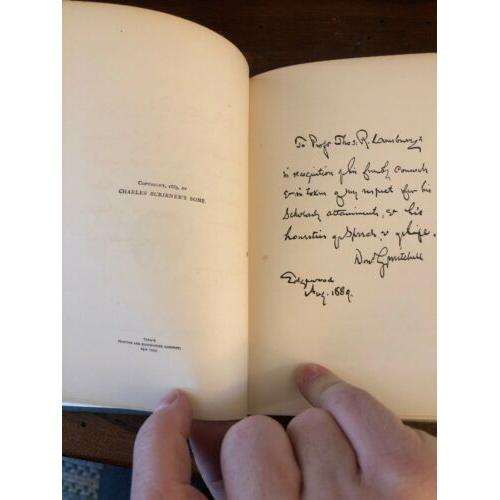 COPYRIGHT, 1889, BY
CHARLES SCRIBNER'S SONS.
TROW'S
PRINTING AND BOOKBINDING COMPANY,
NEW YORK.
To Prof Thos. R. Lounsbury
in recognition of his friendly
& in token of my respect for his
Scholarly attainments, & his
honesties of Speech, & of life.
Don'd G Mitchell
Edgewood
Aug. 1889.